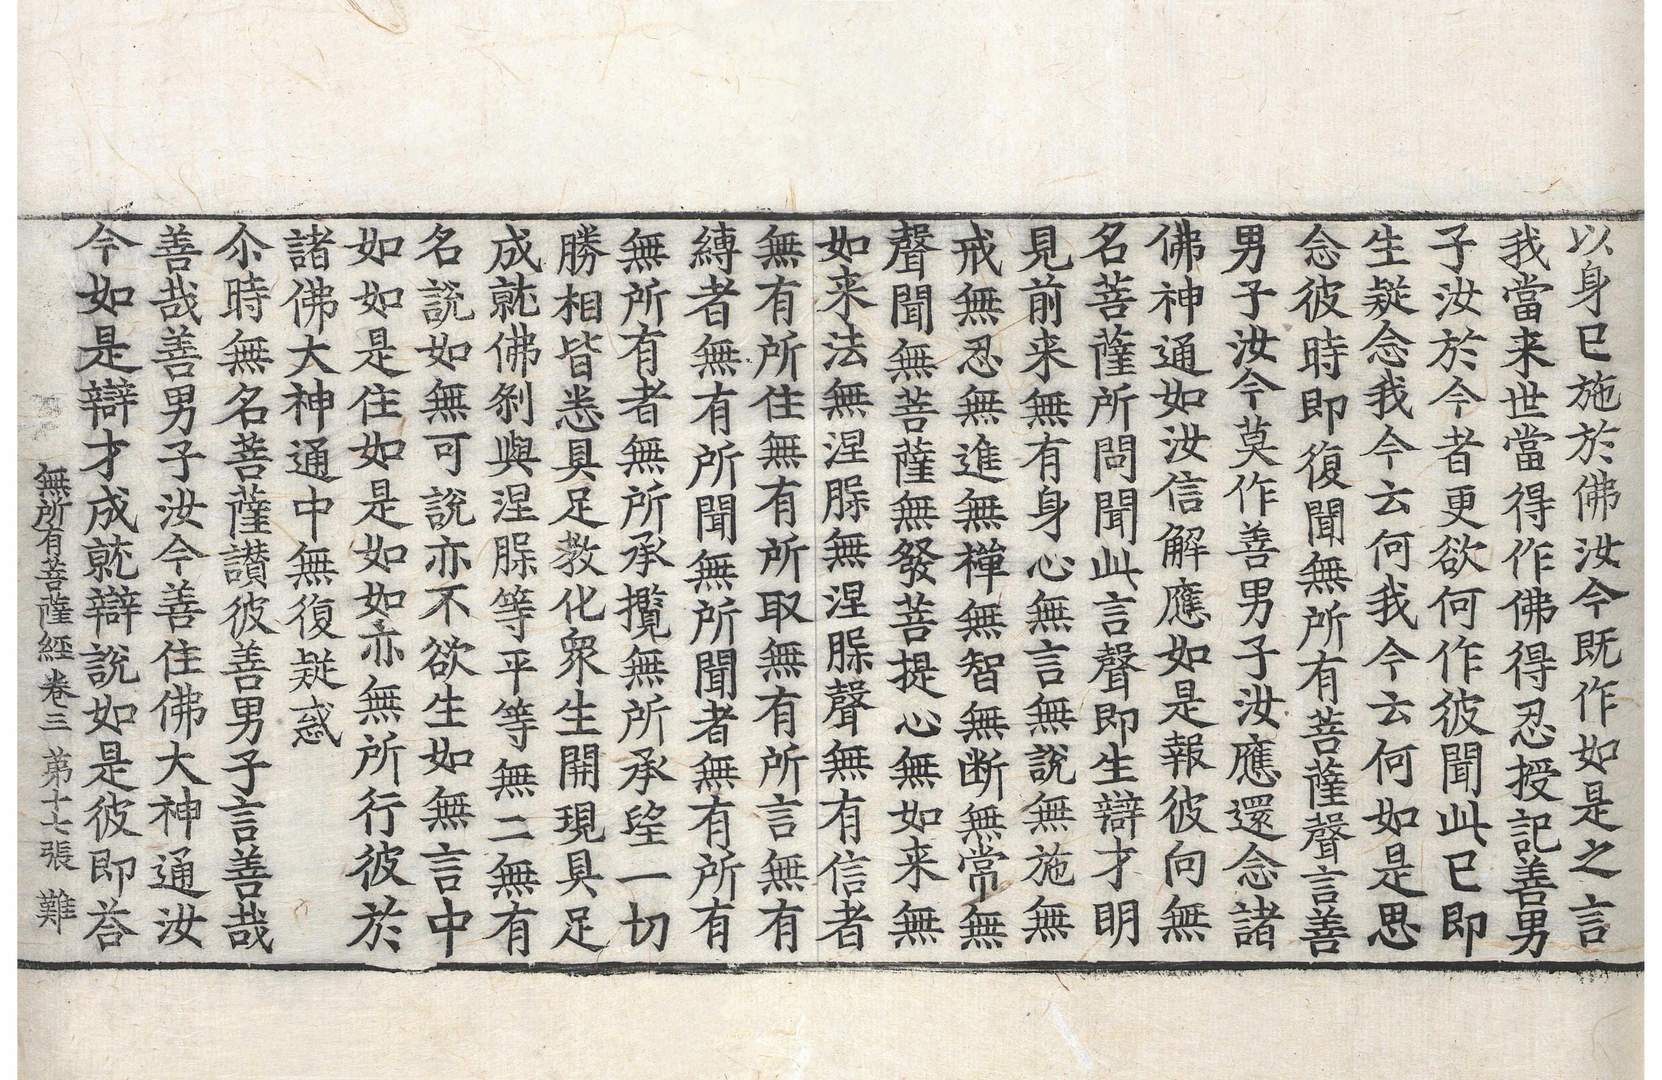 以身已施於佛汝今既作如是之言
我當来世當得作佛得忍授記善男
子汝於今者更欲何作彼聞此已即
生疑念我今云何我今云何如是思
念彼時即復聞無所有菩薩聲言善
男子汝今莫作善男子汝應還念諸
佛神通如汝信解應如是報彼向無
名菩薩所問聞此言聲即生辯才明
見前来無有身心無言無說無施無
戒無忍無進無禪無智無断無常無
聲聞無菩薩無發菩提心無如来無
如来法無涅槃無涅槃聲無有信者
無有所住無有所取無有所言無有
縛者無有所聞無所聞者無有所有
無所有者無所承攬無所承望一切
勝相皆悉具足教化衆生開現具足
成就佛刹與涅槃等平等無二無有
名說如無可說亦不欲生如無言中
如如是住如是如如亦無所行彼於
諸佛大神通中無復疑惑
尒時無名菩薩讃彼善男子言善哉
善哉善男子汝今善住佛大神通汝
今如是辯才成就辯說如是彼即荅
無所有菩薩經卷三 第十七張 難